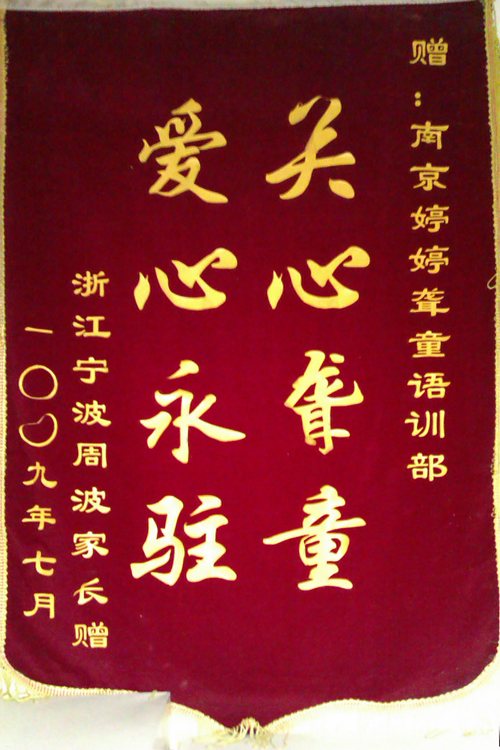 赠：南京婷婷聋童语训部
关心聋童
爱心永驻
浙江宁波周波家长赠
一〇〇九年七月